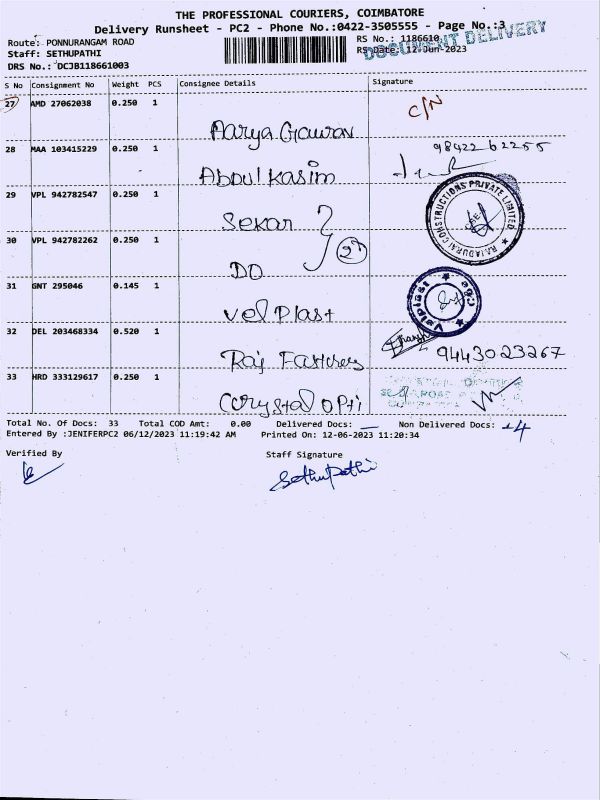 THE PROFESSIONAL COURIERS, COIMBATORE
Delivery Runsheet - PC2 - Phone No.:0422-3505555 - Page No.:3
Route: PONNURANGAM ROAD
RS No.: 1186610
DOCUMENT DELIVERY
Staff: SETHUPATHI
RS Date: 12-Jun-2023
DRS No.: DCJB118661003
S No Consignment No Weight PCS Consignee Details Signature
27 AMD 27062038 0.250 1
C/N
Aarya Gaurav
28 MAA 103415229 0.250 1
98422 62255
Abdul Kasim
29 VPL 942782547 0.250 1
RAJADURAI CONSTRUCTIONS PRIVATE LIMITED
Sekar
30 VPL 942782262 0.250 1
27
DO
31 GNT 295046 0.145 1
Velplast
Vel Plast
32 DEL 203468334 0.520 1
94430 23267
Raj Fastners
33 HRD 333129617 0.250 1
Corystal opti
Total No. Of Docs: 33 Total COD Amt: 0.00 Delivered Docs: — Non Delivered Docs: -4
Entered By :JENIFERPC2 06/12/2023 11:19:42 AM Printed On: 12-06-2023 11:20:34
Verified By Staff Signature
Sethupathi